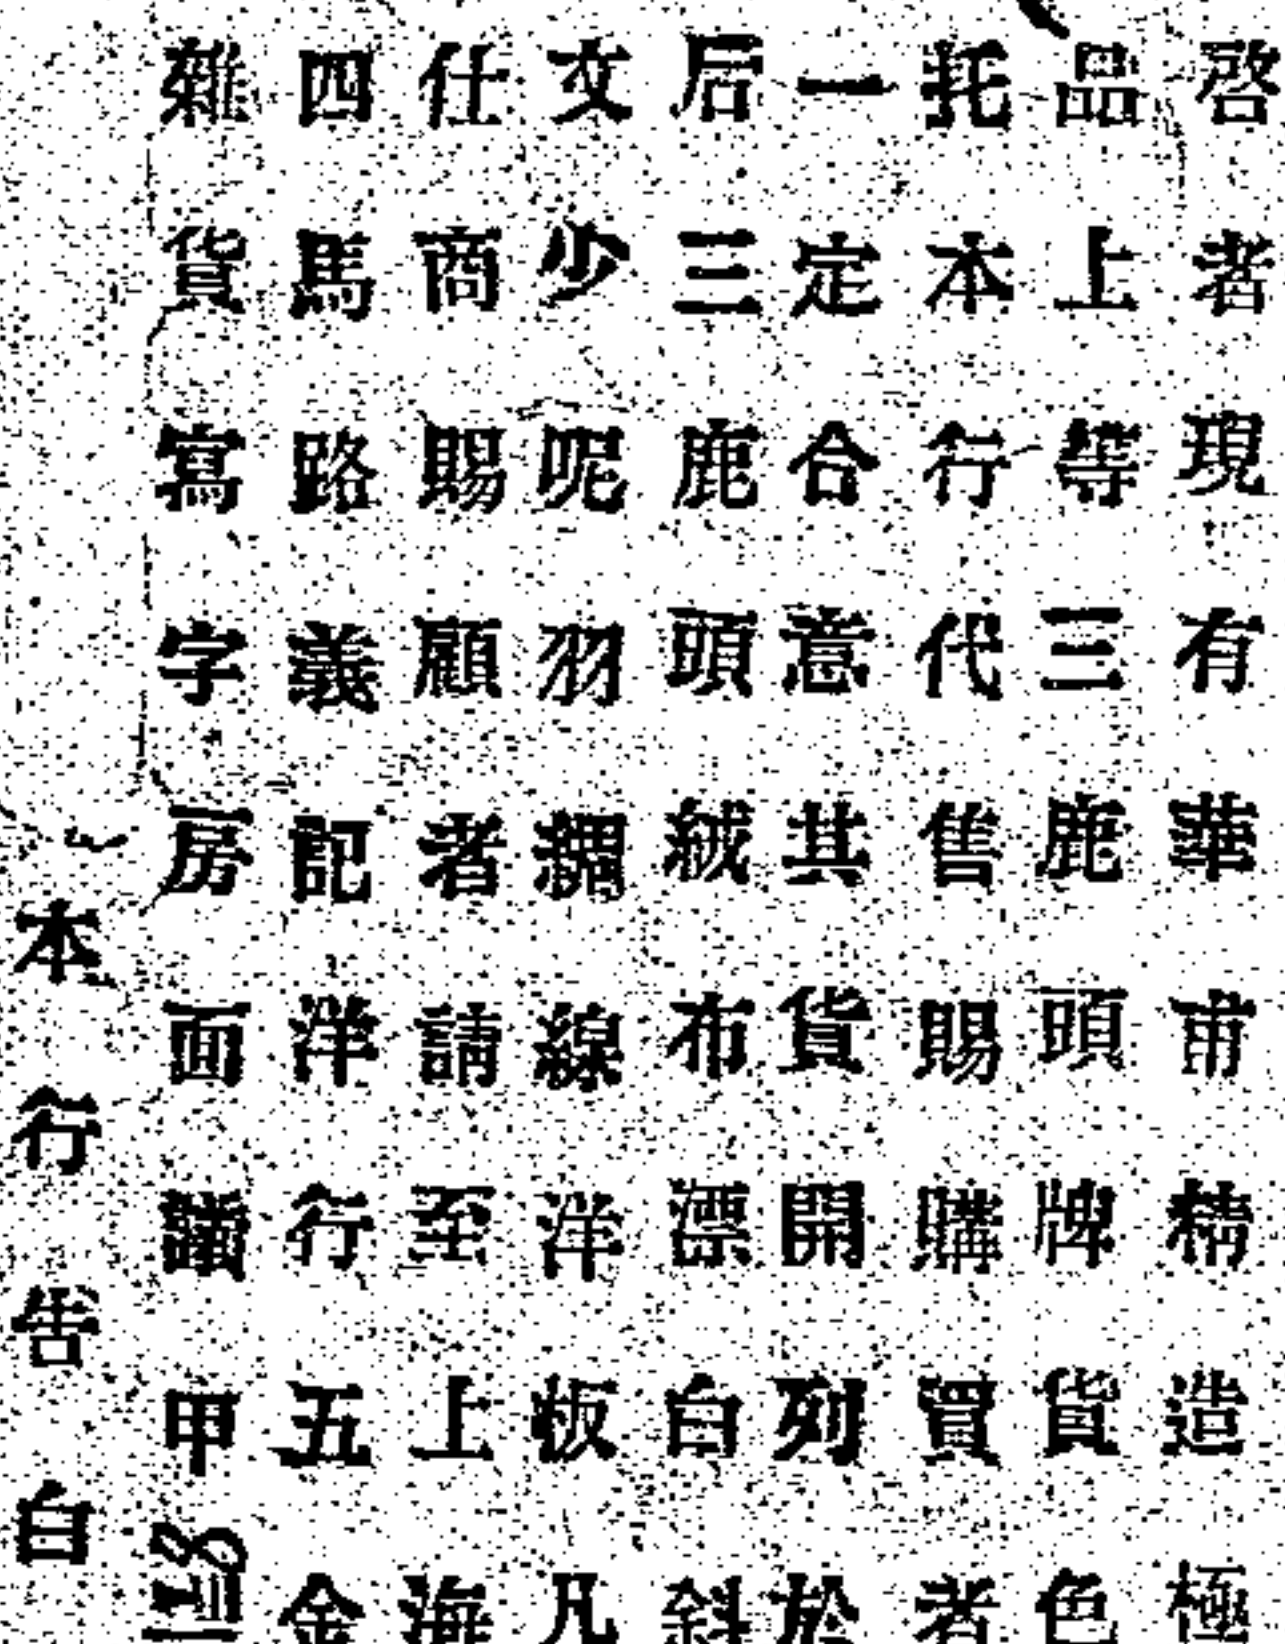 啓者現有華甫精造極
品上等三鹿頭牌貨色
托本行代售賜購買者
一定合意其貨開列於
后三鹿頭絨布漂白斜
文少呢羽綢線洋板凡
仕商賜顧者請至上海
四馬路義記洋行五金
雜貨寫字房面議甲
本行告白